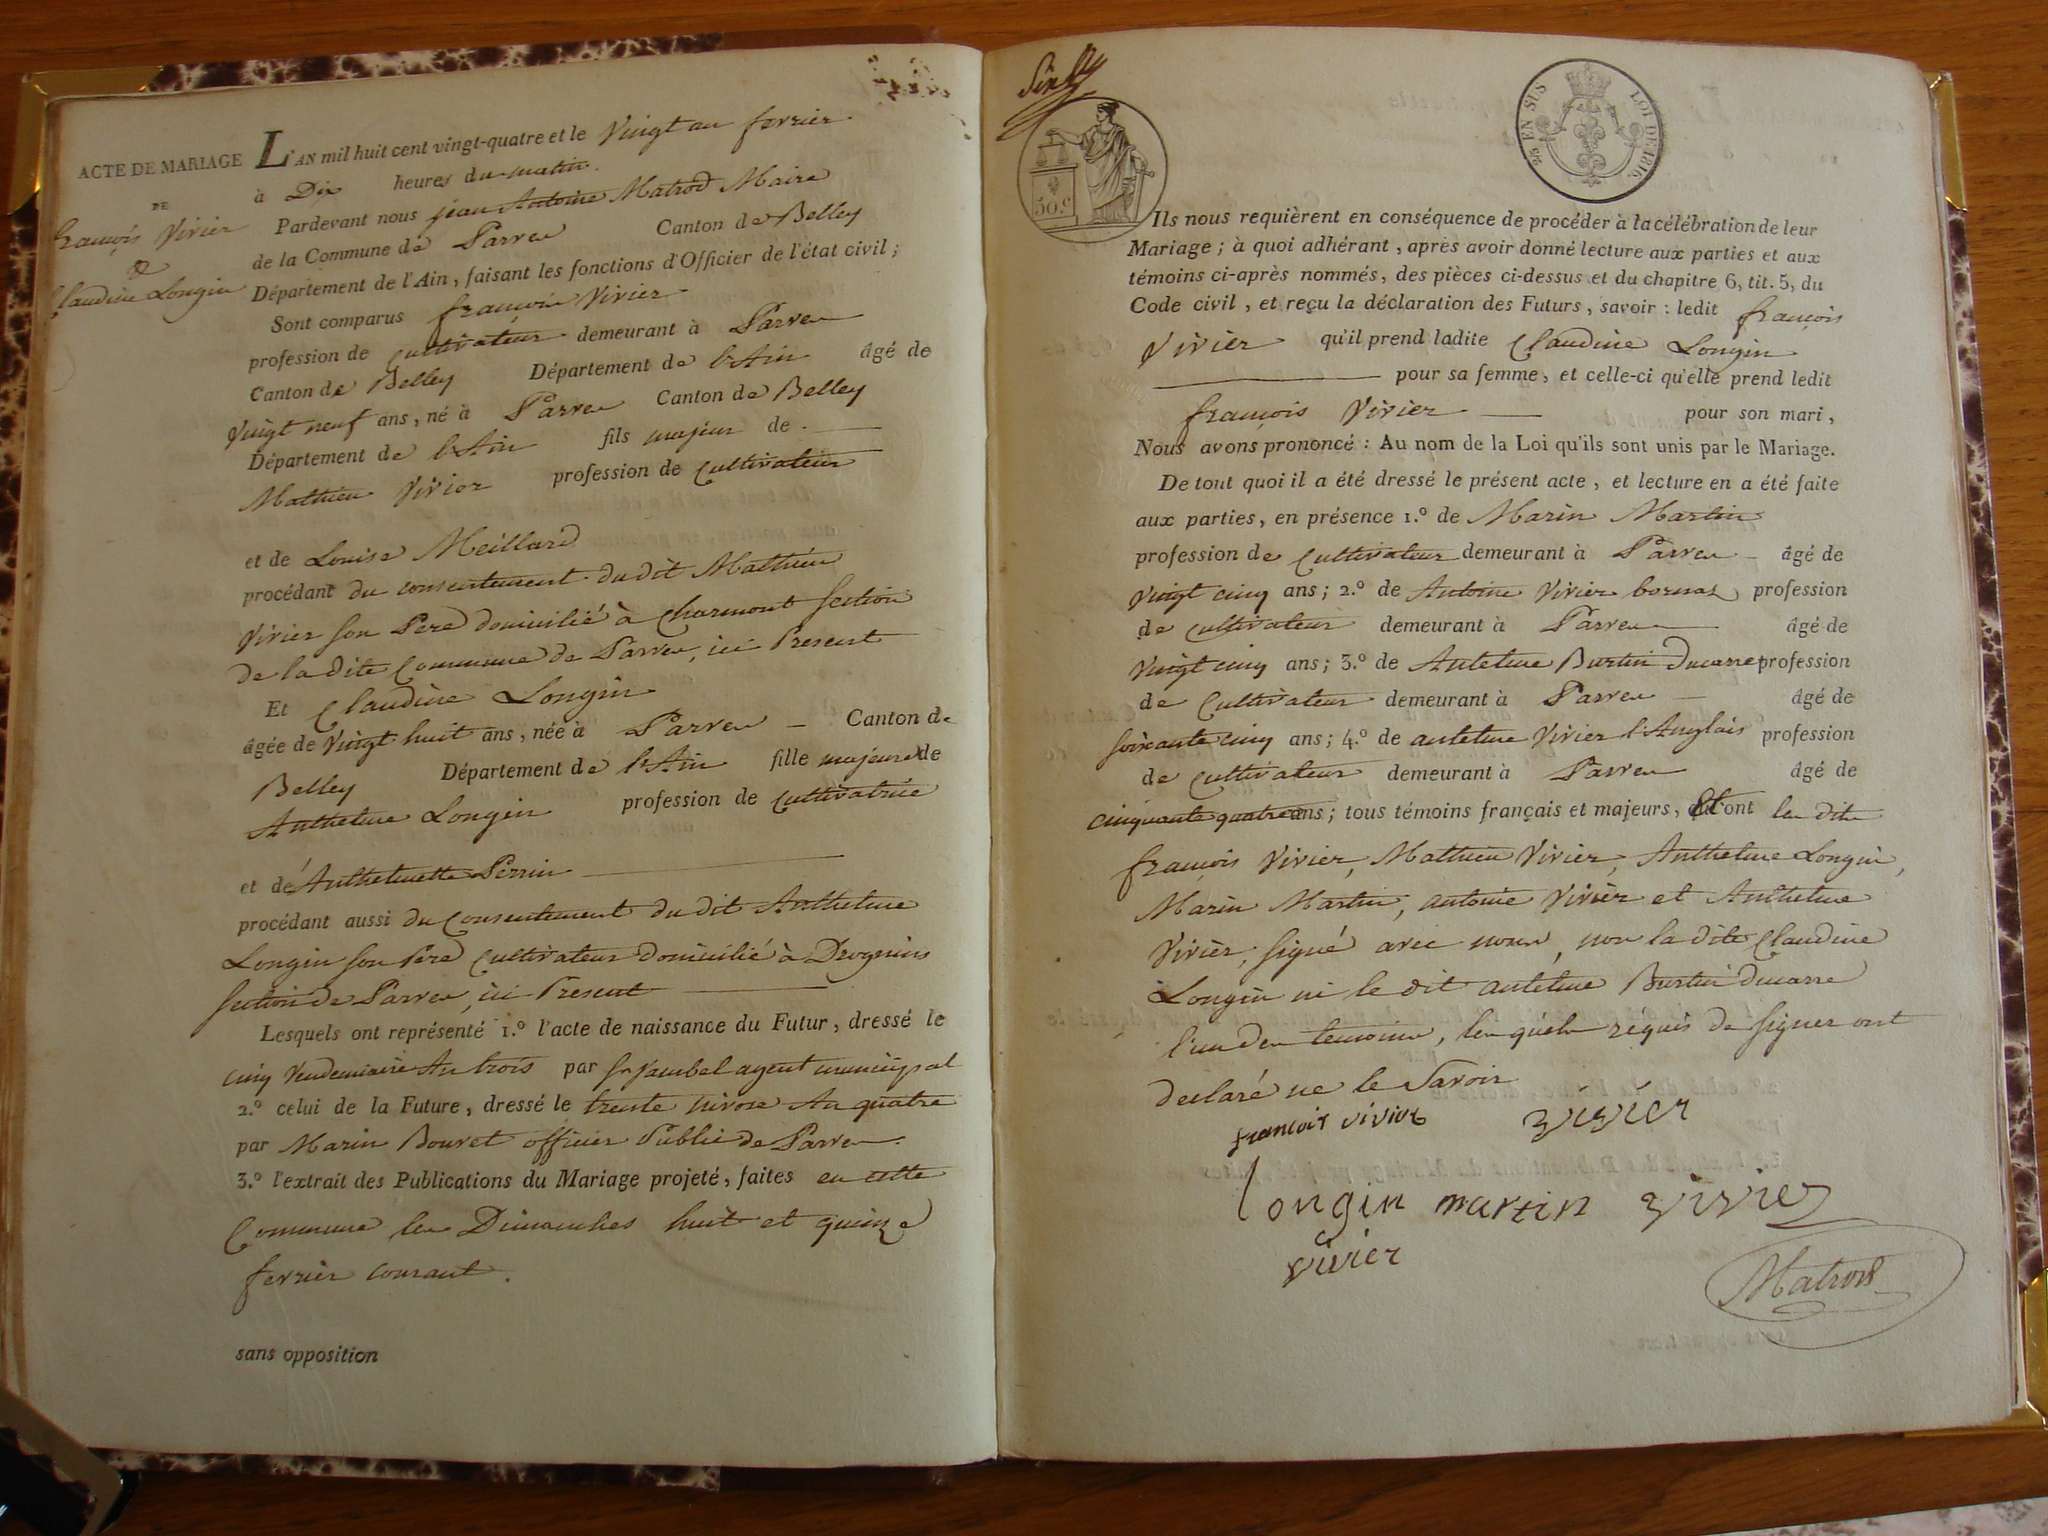 ACTE DE MARIAGE
DE
françois Vivier
&
Claudine Longin
L'AN mil huit cent vingt-quatre et le Vingt au fevrier
à Dix heures du matin.
Pardevant nous jean Antoine Matrod Maire
de la Commune de Parves Canton de Belley
Département de l'Ain, faisant les fonctions d'Officier de l'état civil ;
Sont comparus françois Vivier
profession de Cultivateur demeurant à Parves
Canton de Belley Département de l'Ain âgé de
Vingt neuf ans, né à Parves Canton de Belley
Département de l'Ain fils majeur de
Mathieu Vivier profession de Cultivateur
et de Louise Meillard
procédant du consentement du dit Mathieu
Vivier son Pere domicilié à Charmont section
de la dite Commune de Parves, ici Present
Et Claudine Longin
âgée de Vingt huit ans, née à Parves Canton de
Belley Département de l'Ain fille majeure de
Anthelme Longin profession de Cultivatrice
et de Anthelmette Perrin
procédant aussi du Consentement du dit Anthelme
Longin son Pere Cultivateur domicilié à Drognins
section de Parves, ici Present
Lesquels ont représenté 1.º l'acte de naissance du Futur, dressé le
cinq Vendemiaire An trois par jambel agent municipal
2.º celui de la Future, dressé le trente nivose An quatre
par Marin Bouvet officier Public de Parves.
3.º l'extrait des Publications du Mariage projeté, faites en cette
Commune les Dimanches huit et quinze
fevrier courant.
sans opposition
50.c
EN SUS
LOI DE 1816.
Ils nous requièrent en conséquence de procéder à la célébration de leur
Mariage ; à quoi adhérant, après avoir donné lecture aux parties et aux
témoins ci-après nommés, des pièces ci-dessus et du chapitre 6, tit. 5, du
Code civil, et reçu la déclaration des Futurs, savoir : ledit françois
Vivier qu'il prend ladite Claudine Longin
pour sa femme, et celle-ci qu'elle prend ledit
françois Vivier pour son mari,
Nous avons prononcé : Au nom de la Loi qu'ils sont unis par le Mariage.
De tout quoi il a été dressé le présent acte, et lecture en a été faite
aux parties, en présence 1.º de Marin Martin
profession de Cultivateur demeurant à Parves âgé de
Vingt cinq ans ; 2.º de Antoine Vivier bornas profession
de Cultivateur demeurant à Parves âgé de
Vingt cinq ans ; 3.º de Antelme Burtin Ducarre profession
de Cultivateur demeurant à Parves âgé de
soixante cinq ans ; 4.º de antelme Vivier l'Anglais profession
de Cultivateur demeurant à Parves âgé de
cinquante quatre ans ; tous témoins français et majeurs, Et ont les dits
françois Vivier, Mathieu Vivier, Anthelme Longin,
Marin Martin, antoine Vivier et Anthelme
Vivier, signé avec nous, non la dite Claudine
Longin ni le dit antelme Burtin Ducarre
l'un des temoins, les quels réquis de signer ont
declaré ne le Savoir
francois vivier vivier
longin martin vivier
vivier
Matrod